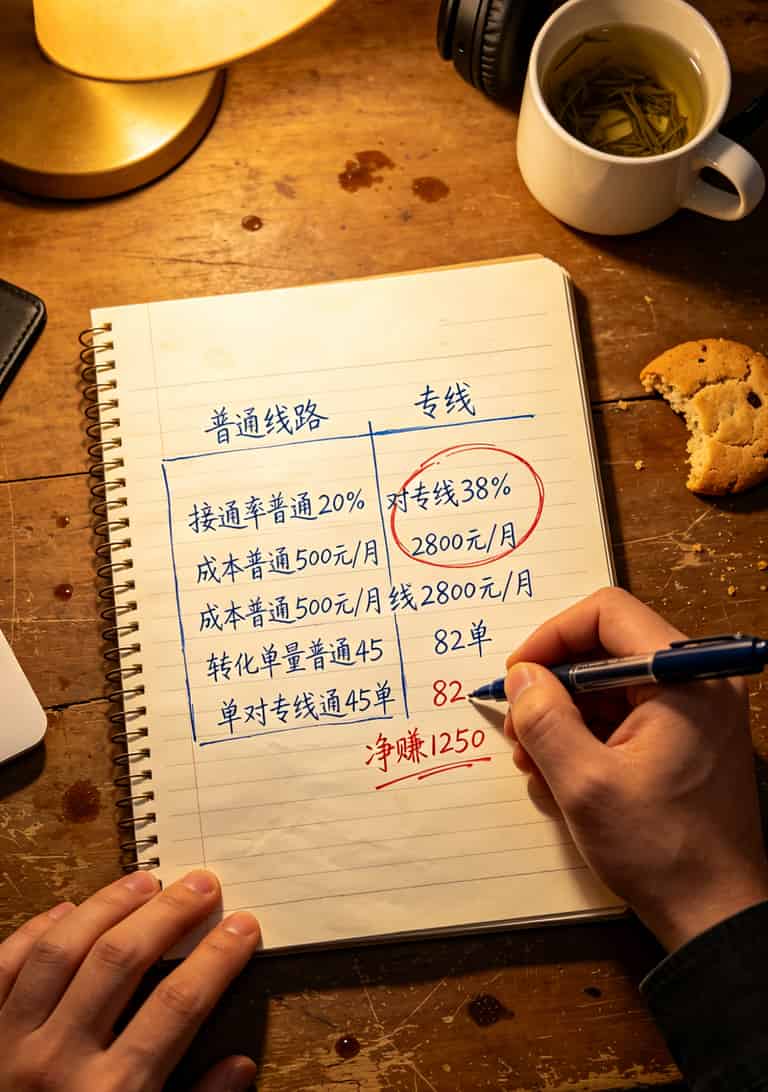 普通线路 专线
接通率普通20% 对专线38%
成本普通500元/月 2800元/月
成本普通500元/月 线2800元/月
转化单量普通45 82单
单对专线通45单 82
净赚1250